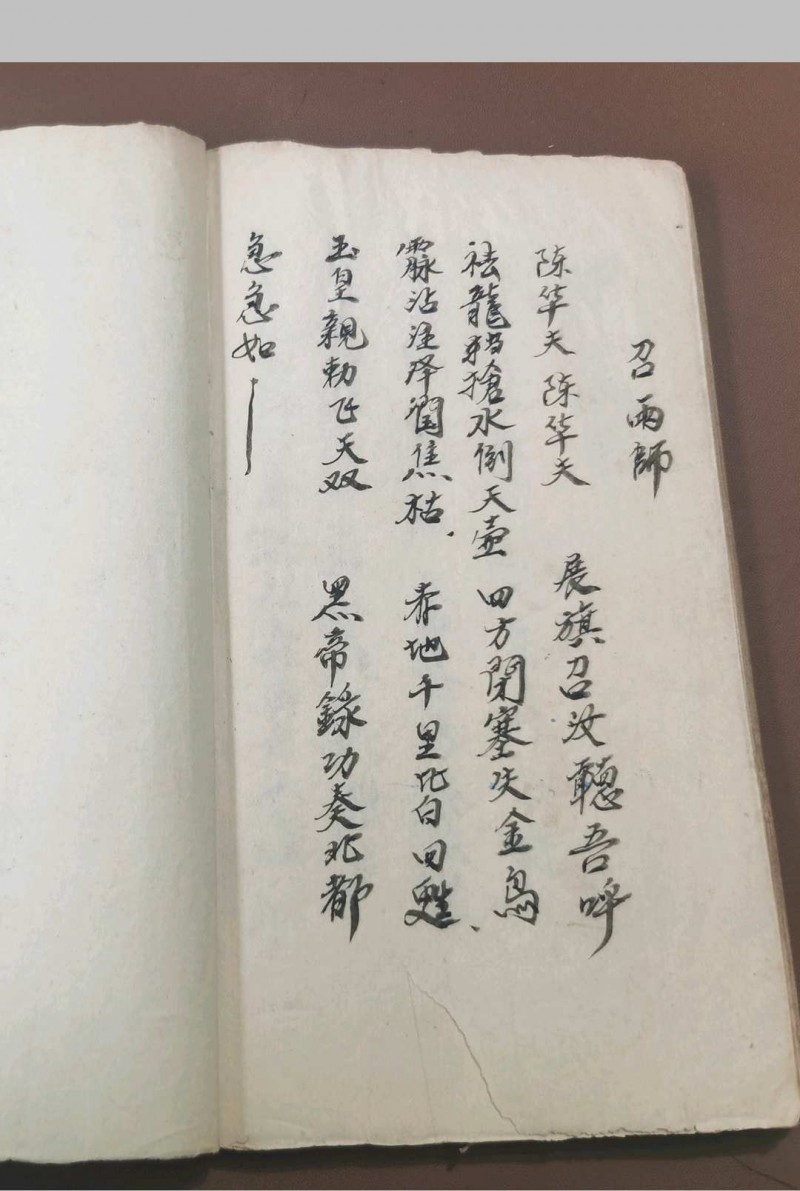 召雨師
陈华夫 陈华夫 展旗召汝聽吾呼
祛龍 搶水倒天壶 四方閉塞失金烏
霡沾注泽潤焦枯 赤地千里皆回甦
玉皇親勅飞天双 黑帝錄功奏北都
急急如